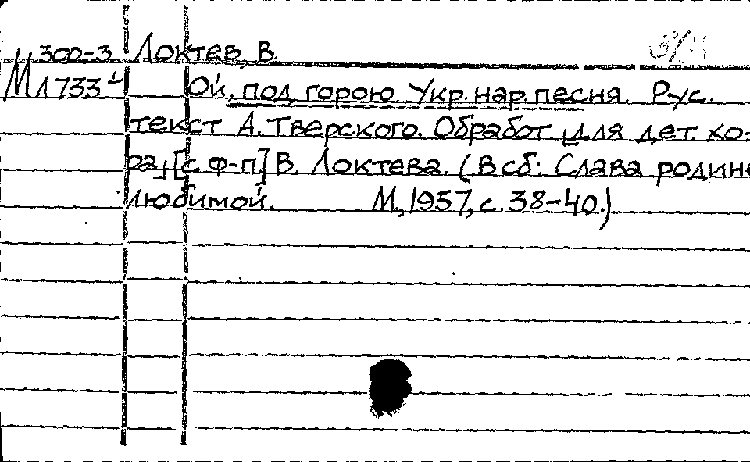 300-3 Локтев, В.
М 1733 Ой, под горою. Укр. нар. песня. Рус.
текст А. Тверского. Обработ. для дет. хо-
ра, [с ф-п] В. Локтева. (В сб: Слава родине
любимой. М, 1957, с. 38-40.)